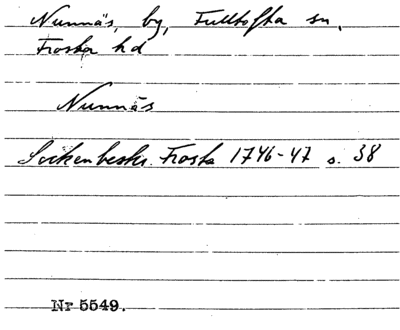 Nunnäs, by, Fulltofta sn,
Frosta hd
Nunnäs
Sockenbeskr. Frosta 1746-47 s. 38
Nr 5549.